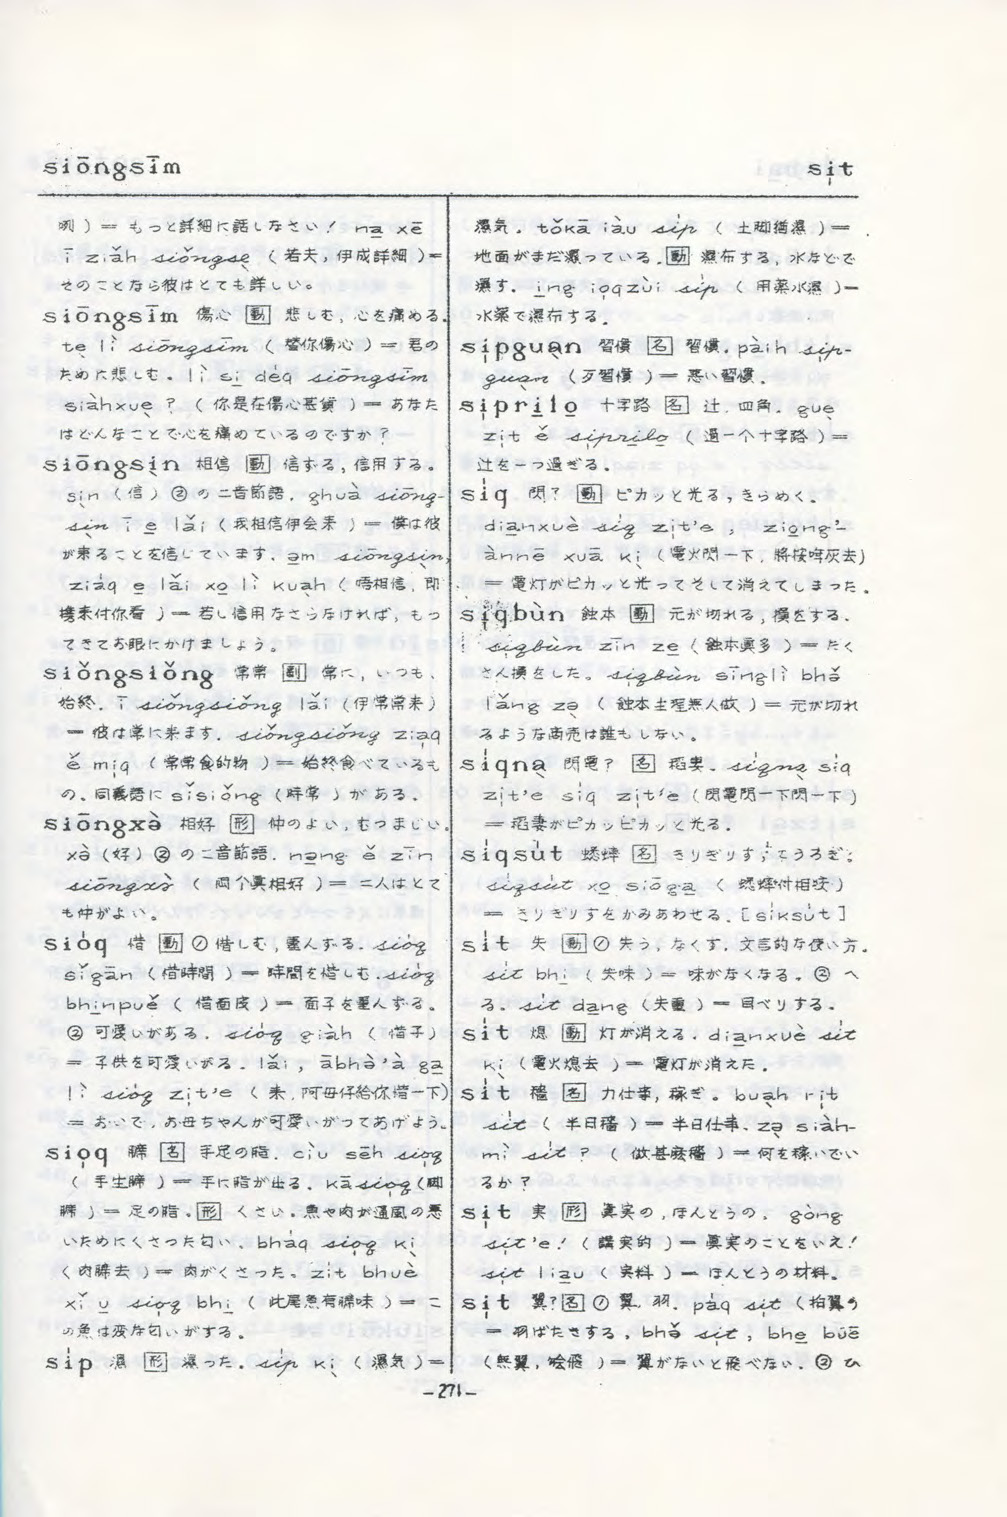 siōngsīm
si̍t
例）＝もっと詳細に話しなさい！na̱ xē
ī ziàh siǒngsẹ（若夫，伊成詳細）＝
そのことなら彼はとても詳しい。
siōngsīm 傷心 [動] 悲しむ，心を痛める．
tẹ lì siōngsīm（替你傷心）＝君の
ために悲しむ。lì si̱ dėq siōngsīm
siàhxuẹ？（你是在傷心甚貨）＝あなた
はどんなことで心を痛めているのですか？
siōngsịn 相信 [動] 信ずる，信用する。
sịn（信）②の二音節語．ghuà siōng-
sịn ī e̱ lǎi（我相信伊会来）＝僕は彼
が来ることを信じています．ạm siōngsịn,
ziáq e̱ lǎi xo̱ lì kuạh（唔相信，即
携来付你看）＝若し信用なさらなければ，もっ
てきてお眼にかけましょう。
siǒngsiǒng 常常 [副] 常に，いつも，
始終．ī siǒngsiǒng lǎi（伊常常来）
＝彼は常に来ます．siǒngsiǒng ziạq
ě mi̍q（常常食的物）＝始終食べているも
の．同義語に sǐsiǒng（時常）がある．
siōngxə̀ 相好 [形] 仲のよい，むつまじい．
xə̀（好）②の二音節語．nə̱ng ě zīn
siōngxə̀（両个真相好）＝二人はとて
も仲がよい。
sióq 惜 [動] ①惜しむ，重んずる．sióq
sǐgān（惜時間）＝時間を惜しむ．sióq
bhi̱npuě（惜面皮）＝面子を重んずる。
②可愛いがる．sióq giàh（惜子）
＝子供を可愛いがる．lǎi, ābhə̀'à gạ
lì sióq zịt'e（来，阿母仔給你惜一下）
＝おいで，お母ちゃんが可愛いがってあげよう。
siọq [名] 手足の脂．ciù sēh siọq
（手生）＝手に脂が出る．kāsiọq（脚
）＝足の脂。[形] くさい．魚や肉が通風の悪
いためにくさった匂い．bháq siọq kị
（肉去）＝肉がくさった。zịt bhuè
xǐ u̱ siọq bhi̱（此尾魚有味）＝こ
の魚は変な匂いがする。
síp 湿 [形] 湿った．síp kị（濕気）＝
濕気．tǒkā iàu síp（土脚猶濕）＝
地面がまだ濕っている．[動] 濕布する，水などで
濕す．i̱ng iọqzùi síp（用薬水濕）＝
水薬で濕布する．
sịpguạn 習慣 [名] 習慣．pàih sịp-
guạn（歹習慣）＝悪い習慣．
sịpri̱lo̱ 十字路 [名] 辻，四角．guẹ
zịt ě sịpri̱lo̱（過一个十字路）＝
辻を一つ過ぎる．
siq 閃？[動] ピカッと光る，きらめく．
dia̱nxuè siq zịt'e, ziọng'-
ànnē xuā kị（電火閃一下，將按哖灰去）
＝電灯がピカッと光ってそして消えてしまった．
siqbùn 蝕本 [動] 元が切れる，損をする．
siqbùn zīn zẹ（蝕本真多）＝たく
さん損をした。siqbùn sīnglì bhə̌
lǎng zə̣（蝕本生理無人做）＝元が切れ
るような商売は誰もしない。
siqnạ 閃電？[名] 稻妻．siqnạ siq
zịt'e siq zịt'e（閃電閃一下閃一下）
＝稻妻がピカッピカッと光る．
síqsút 蟋蟀 [名] きりぎりす；こうろぎ；
síqsút xo̱ siōgạ（蟋蟀付相咬）
＝きりぎりすをかみあわせる．[síksút]
sít 失 [動] ①失う，なくす．文言的な使い方．
sít bhi̱（失味）＝味がなくなる．② へ
る．sít da̱ng（失重）＝目べりする．
sít 熄 [動] 灯が消える．dia̱nxuè sít
kị（電火熄去）＝電灯が消えた．
sít 穡 [名] 力仕事，稼ぎ。buạh rịt
sít（半日穡）＝半日仕事．zə̣ siàh-
mì sít？（做甚麼穡）＝何を稼いでい
るか？
sịt 実 [形] 真実の，ほんとうの，gòng
sịt'e！（講実的）＝真実のことをいえ！
sịt liau（実料）＝ほんとうの材料。
sịt 翼？[名] ①翼，羽．páq sịt（拍翼）
＝羽ばたきする，bhə̌ sịt, bhe̱ būē
（無翼，袂飛）＝翼がないと飛べない．② ひ
-271-